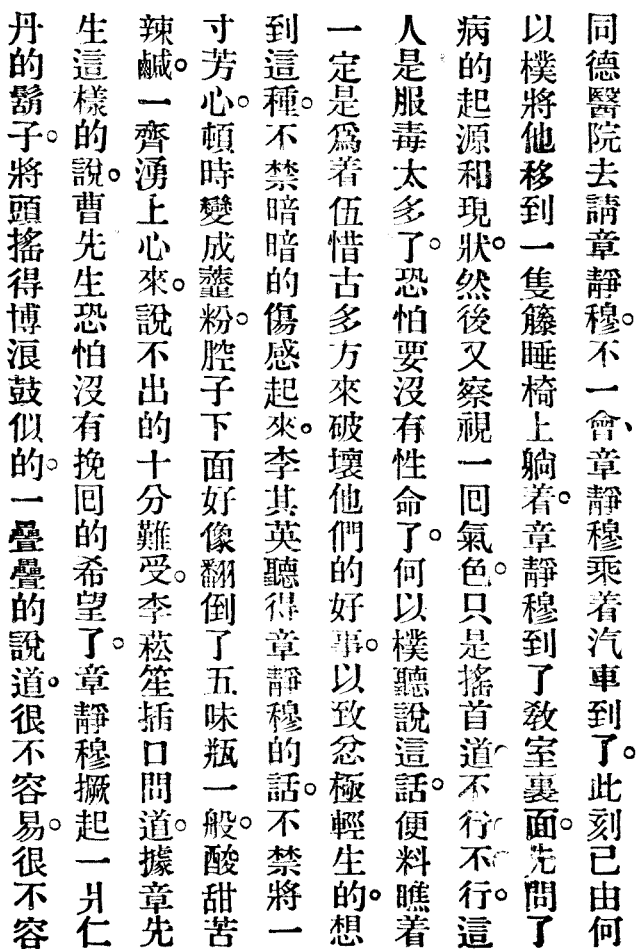 同德醫院去請章靜穆。不一會、章靜穆乘着汽車到了。此刻已由何
以樸將他移到一隻籐睡椅上躺着。章靜穆到了教室裏面。先問了
病的起源和現狀。然後又察視一回氣色。只是搖首道不行不行。這
人是服毒太多了。恐怕要沒有性命了。何以樸聽說這話。便料瞧着
一定是爲着伍惜古多方來破壞他們的好事。以致忿極輕生的。想
到這種。不禁暗暗的傷感起來。李其英聽得章靜穆的話。不禁將一
寸芳心。頓時變成虀粉。腔子下面好像翻倒了五味瓶一般。酸甜苦
辣鹹。一齊湧上心來。說不出的十分難受。李菘笙插口問道。據章先
生這樣的說。曹先生恐怕沒有挽回的希望了。章靜穆撅起一爿仁
丹的鬍子。將頭搖得博浪鼓似的。一疊疊的說道。很不容易。很不容